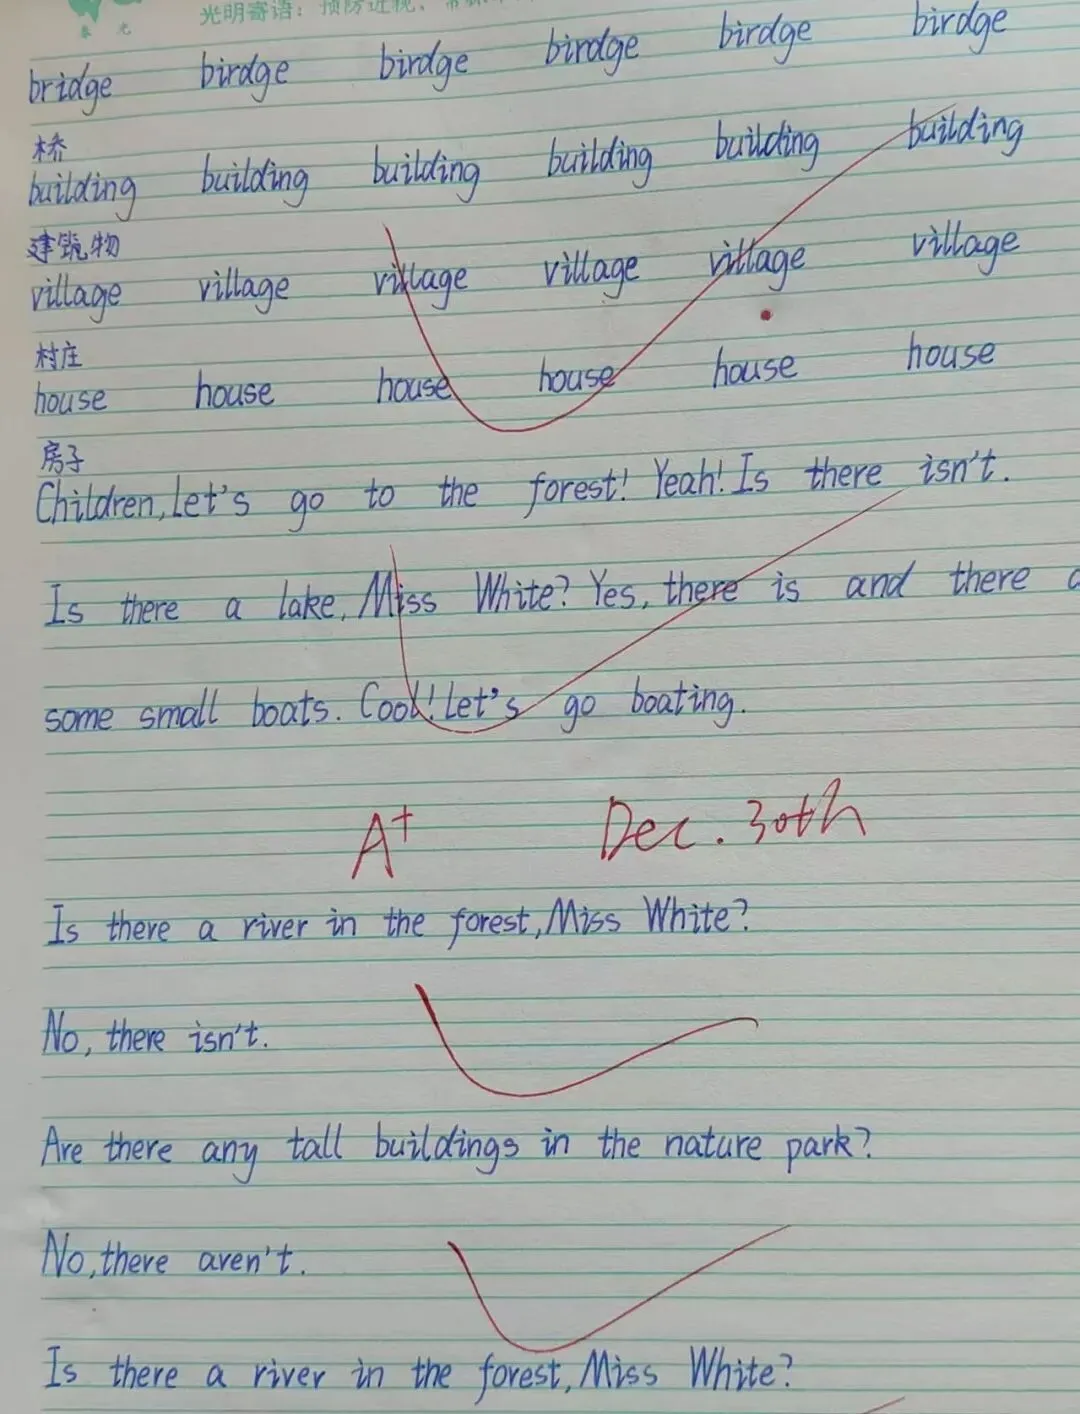 光明寄语：预防近视，
春 光
bridge birdge birdge birdge birdge birdge
桥
building building building building building building
建筑物
village village village village village village
村庄
house house house house house house
房子
Children, Let's go to the forest! Yeah! Is there isn't.
Is there a lake, Miss White? Yes, there is and there
some small boats. Cool! Let's go boating.
A+ Dec. 30th
Is there a river in the forest, Miss White?
No, there isn't.
Are there any tall buildings in the nature park?
No, there aren't.
Is there a river in the forest, Miss White?